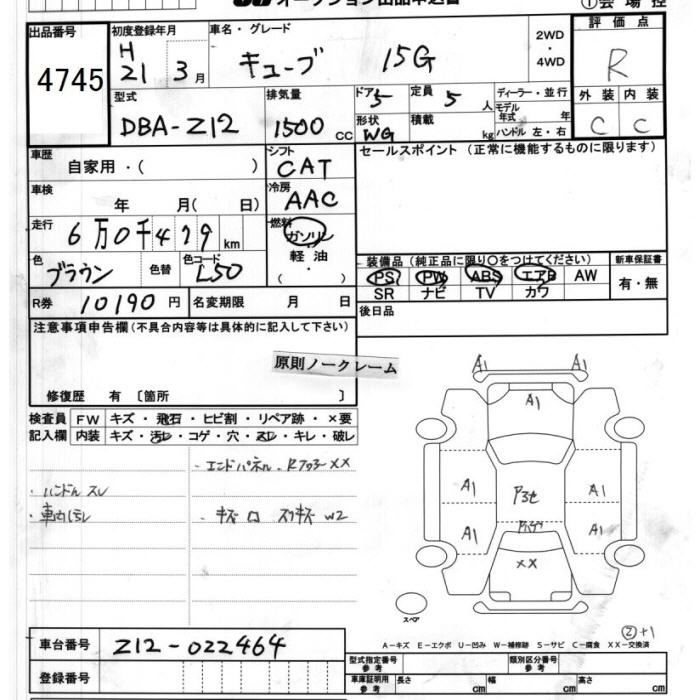 オークション出品申込書
①会場控
出品番号
4745
初度登録年月
H
21 3月
車名・グレード
キューブ 15G
2WD
・
4WD
評価点
R
型式
DBA-Z12
排気量
1500 CC
ドア
5
形状
WG
定員
5 人
積載
kg
ディーラー・並行
モデル
年式 年
ハンドル 左・右
外装 内装
C C
車歴
自家用・( )
シフト
CAT
セールスポイント(正常に機能するものに限ります)
車検
年 月( 日)
冷房
AAC
走行
6万0千479km
燃料
ガソリン
・
軽油
・
( )
色
ブラウン
色替
色コード
L50
装備品(純正品に限り○をつけてください)
PS PW ABS エアB AW
SR ナビ TV カワ
新車保証書
有・無
R券 10190円
名変期限 月 日
後日品
注意事項申告欄(不具合内容等は具体的に記入して下さい)
原則ノークレーム
修復歴 有 〔箇所 〕
検査員
記入欄
FW キズ・飛石・ヒビ割・リペア跡・×要
内装 キズ・汚レ・コゲ・穴・スレ・キレ・破レ
・エンドパネル、Rフロアー××
・ハンドルスレ
・車内汚レ
・キズ ロ スリキズ W2
A1 A1
A1
A1 A1
A1 A1
××
スペア
②+1
A-キズ E-エクボ U-凹み W-補修跡 S-サビ C-腐食 XX-交換済
車台番号 Z12-022464
登録番号
型式指定番号
参考
類別区分番号
参考
車庫証明用
参考
長さ cm
幅 cm
高さ cm